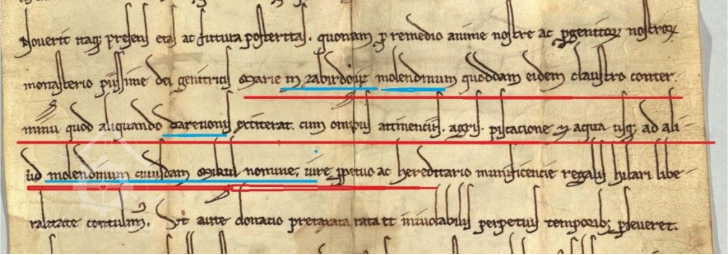 Noverit itaq; presens etas ac futura posteritas. quoniam ꝓ remedio anime nostre ac ꝓgenitoꝝ nostroꝝ
monasterio piissime dei genitricis Marie in molendinum quoddam eidem claustro conter
minū quod aliquando Darevonis extiterat. cum attinenciis. agris. piscatione ⁊ aqua usq; ad ali
ud molendinum cuiusdam Mikul nomine; iure ꝑpetuo ac hereditario munificencie regalis hilari libe
ralitate contulimꝰ. Ut aute donatio pretaxata rata et inviolabilis perpetuis temporib; ꝑseveret.